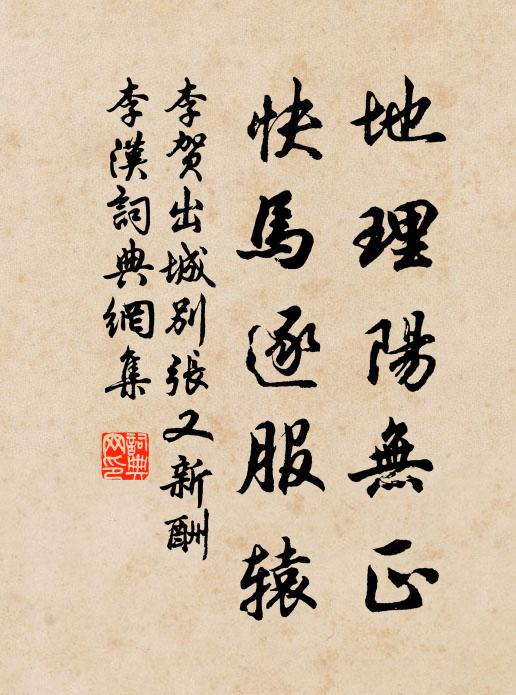 地理陽無正
快馬逐服辕
李贺出城别張又新酬
李漢詞典網集
詞典网印